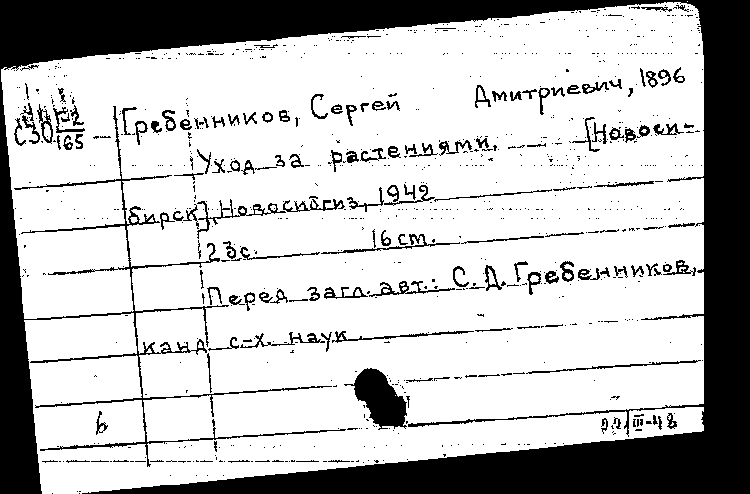 Гребенников, Сергей Дмитриевич, 1896
С30 Г-2/165
Уход за растениями. [Новоси-
бирск], Новосибгиз, 1942
23с. 16 cm.
Перед загл. авт.: С. Д. Гребенников,
канд с-х. наук
b
III-48